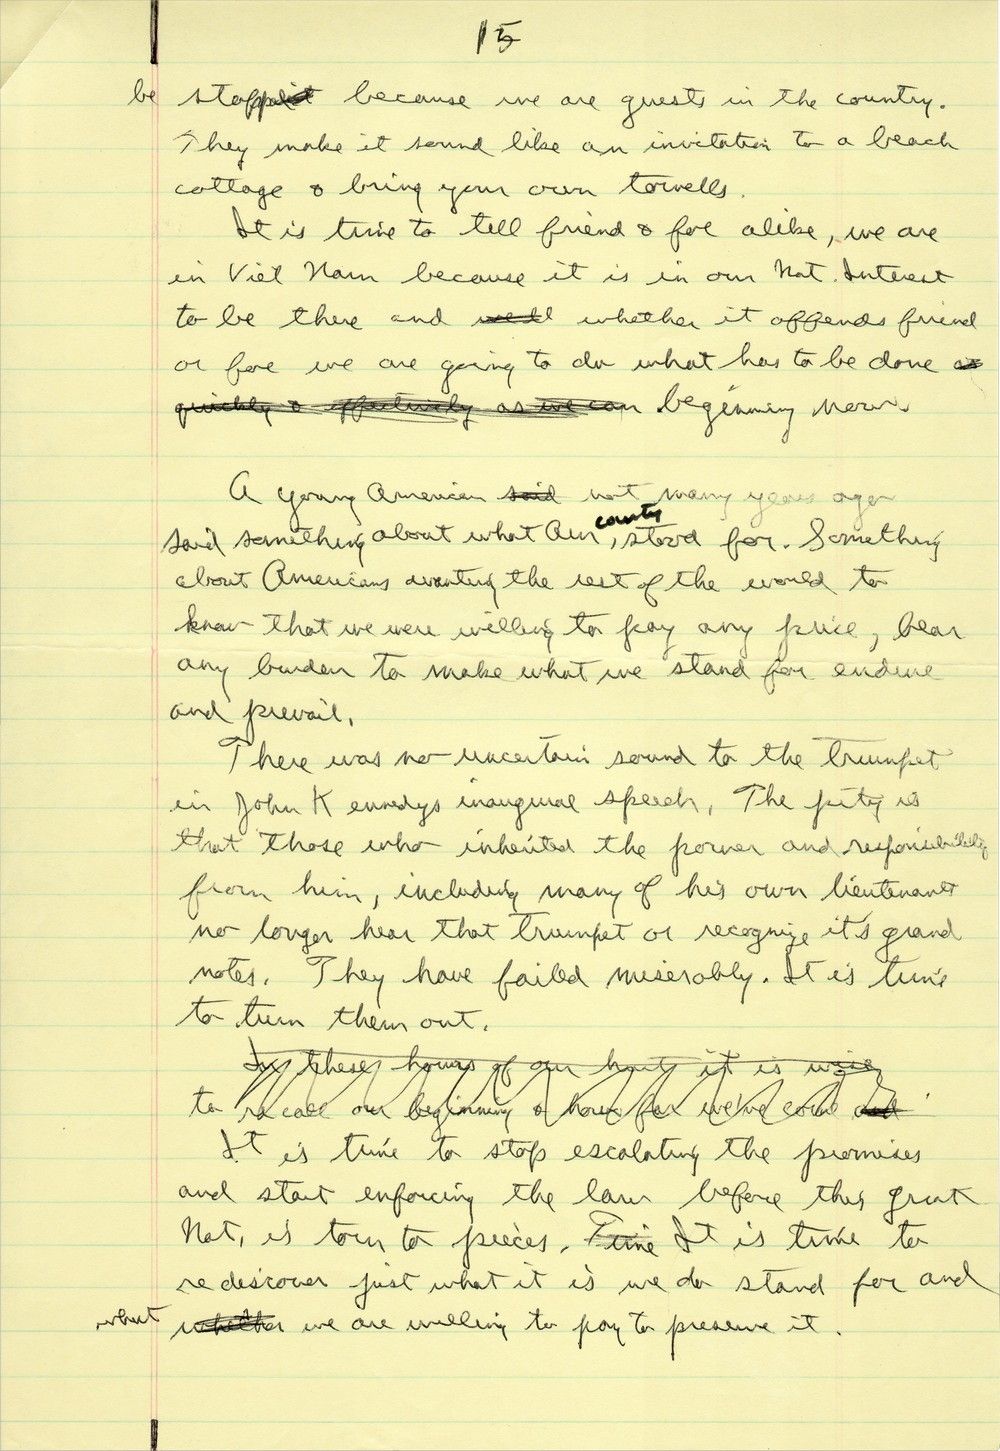 15
be stopped because we are guests in the country.
They make it sound like an invitation to a beach
cottage & bring your own towells.
It is time to tell friend & foe alike, we are
in Viet Nam because it is in our Nat. Interest
to be there and well whether it offends friend
or foe we are going to do what has to be done as
quickly & effectively as we can beginning now.
A young American said not many years ago
said something about what our county stood for. Something
about Americans wanting the rest of the world to
know that we were willing to pay any price, bear
any burden to make what we stand for endure
and prevail.
There was no uncertain sound to the trumpet
in John Kennedys inaugural speech. The pity is
that those who inherited the power and responsibility
from him, including many of his own lieutenants
no longer hear that trumpet or recognize it's grand
notes. They have failed miserably. It is time
to turn them out.
In these hours of our it is
to recall our beginning & how far we've come and
It is time to stop escalating the promises
and start enforcing the law before this great
Nat. is torn to pieces. Time It is time to
rediscover just what it is we do stand for and
what whether we are willing to pay to preserve it.